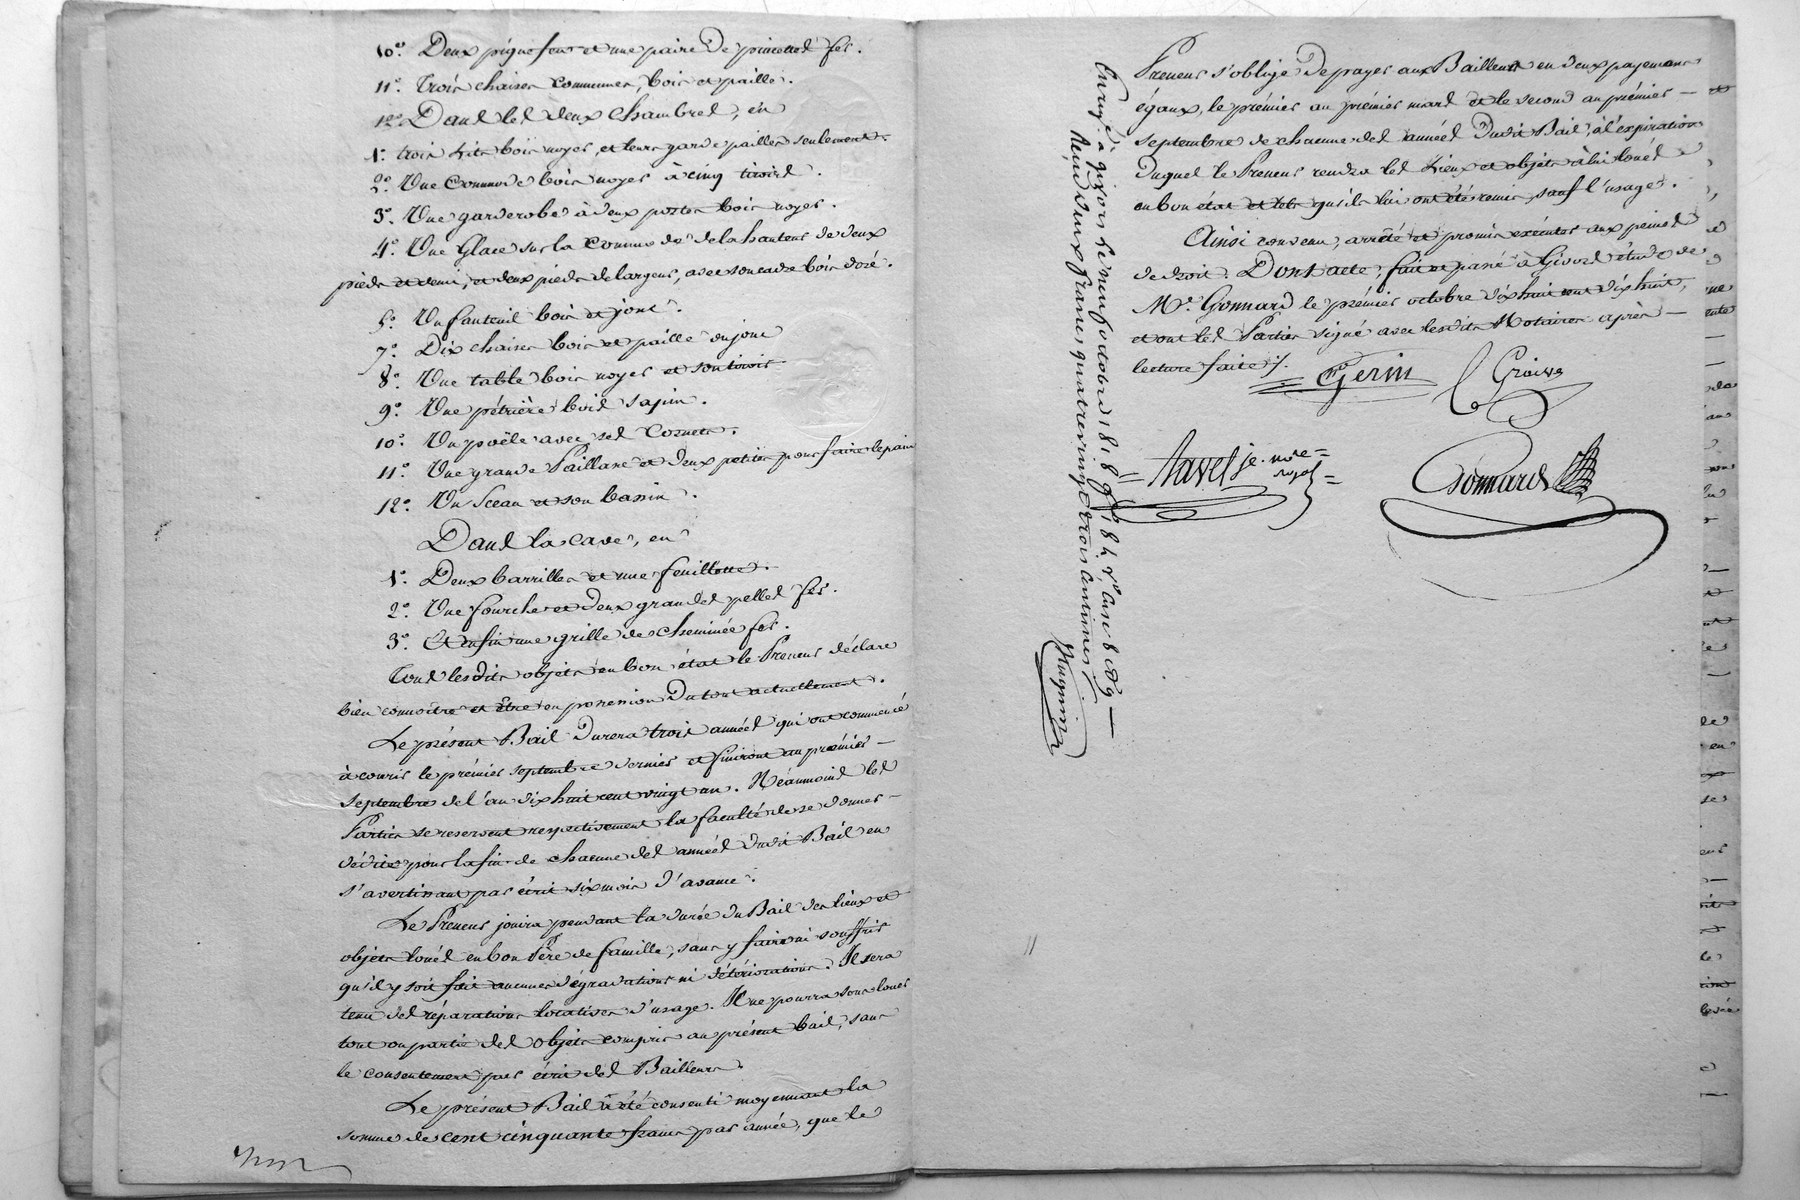 10°. Deux pique feux et une paire de pincettes fer.
11°. Trois chaises communes, bois et paille.
12°. Dans les deux chambres, en
1°. trois Lits bois noyer, et leurs garde pailles seulement.
2°. Une Commode bois noyer à cinq tiroirs.
3°. Une garderobe à deux portes bois noyer.
4°. Une Glace sur la Commode de la hauteur de deux
pieds et demi, et deux pieds de largeur, avec son cadre bois doré.
5°. Un fauteuil bois et jonc.
7°. Dix chaises bois et paille ou jonc
8°. Une table bois noyer et son tiroir
9°. Une pétrière bois sapin.
10°. Un poële avec ses Cornets.
11°. Une grande Paillasse et deux petites pour faire le pain
12°. Un Sceau et son bassin.
Dans la cave, en
1°. Deux barrilles et une feuillette.
2°. Une fourche et deux grandes pelles fer.
3°. Et enfin une grille de cheminée fer.
Tous lesdits objets en bon état le Preneur déclare
bien connoître et être en possession du tout actuellement.
Le présent Bail durera trois années qui ont commencé
à courir le prémier septembre dernier et finiront au prémier —
septembre de l'an dix huit cent vingt un. Néanmoins les
Parties se reservent respectivement la faculté de se donner —
dédite pour la fin de chacune des années dudit Bail en
s'avertissant par écrit six mois d'avance.
Le Preneur jouira pendant la durée du Bail des lieux et
objets loués en bon Père de famille, sans y faire ni souffrir
qu'il y soit fait aucunes dégradations ni détériorations. Il sera
tenu des réparations locatives d'usage. Il ne pourra sous louer
tout ou partie des objets compris au présent bail, sans
le consentement par écrit des Bailleurs.
Le présent Bail a été consenti moyennant la
somme de cent cinquante francs par année, que le
Preneur s'oblige de payer aux Bailleurs en deux payemens
égaux, le prémier au prémier mars et le second au prémier —
septembre de chacune des années dudit Bail, à l'expiration
duquel le Preneur rendra les Lieux et objets à lui loués
en bon état et tels qu'ils lui ont été remis, sauf l'usage.
Ainsi convenu, arrêté et promis exécuter aux peines
de droit. Dont acte, fait et passé à Givors étude de
Me. Gonnard le prémier octobre dix huit cent dix huit,
et ont les Parties signé avec lesdits Notaires après —
lecture faite ./.
Gerin
Gonnard
Enreg. à givors le neuf octobre 1818 f° 184 v° case 8 et 9 —
Reçu deux francs quatre vingt trois centimes